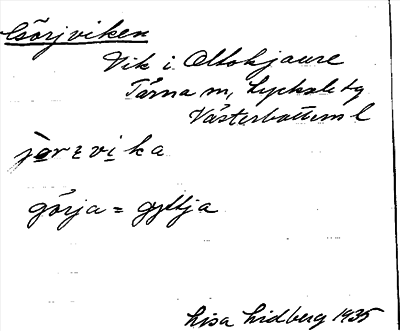 Görjviken
Vik i Oltokjaure
Tärna sn, Lycksele tg
Västerbottens l
jörzvika
görja = gyttja
Lisa Lidberg 1935